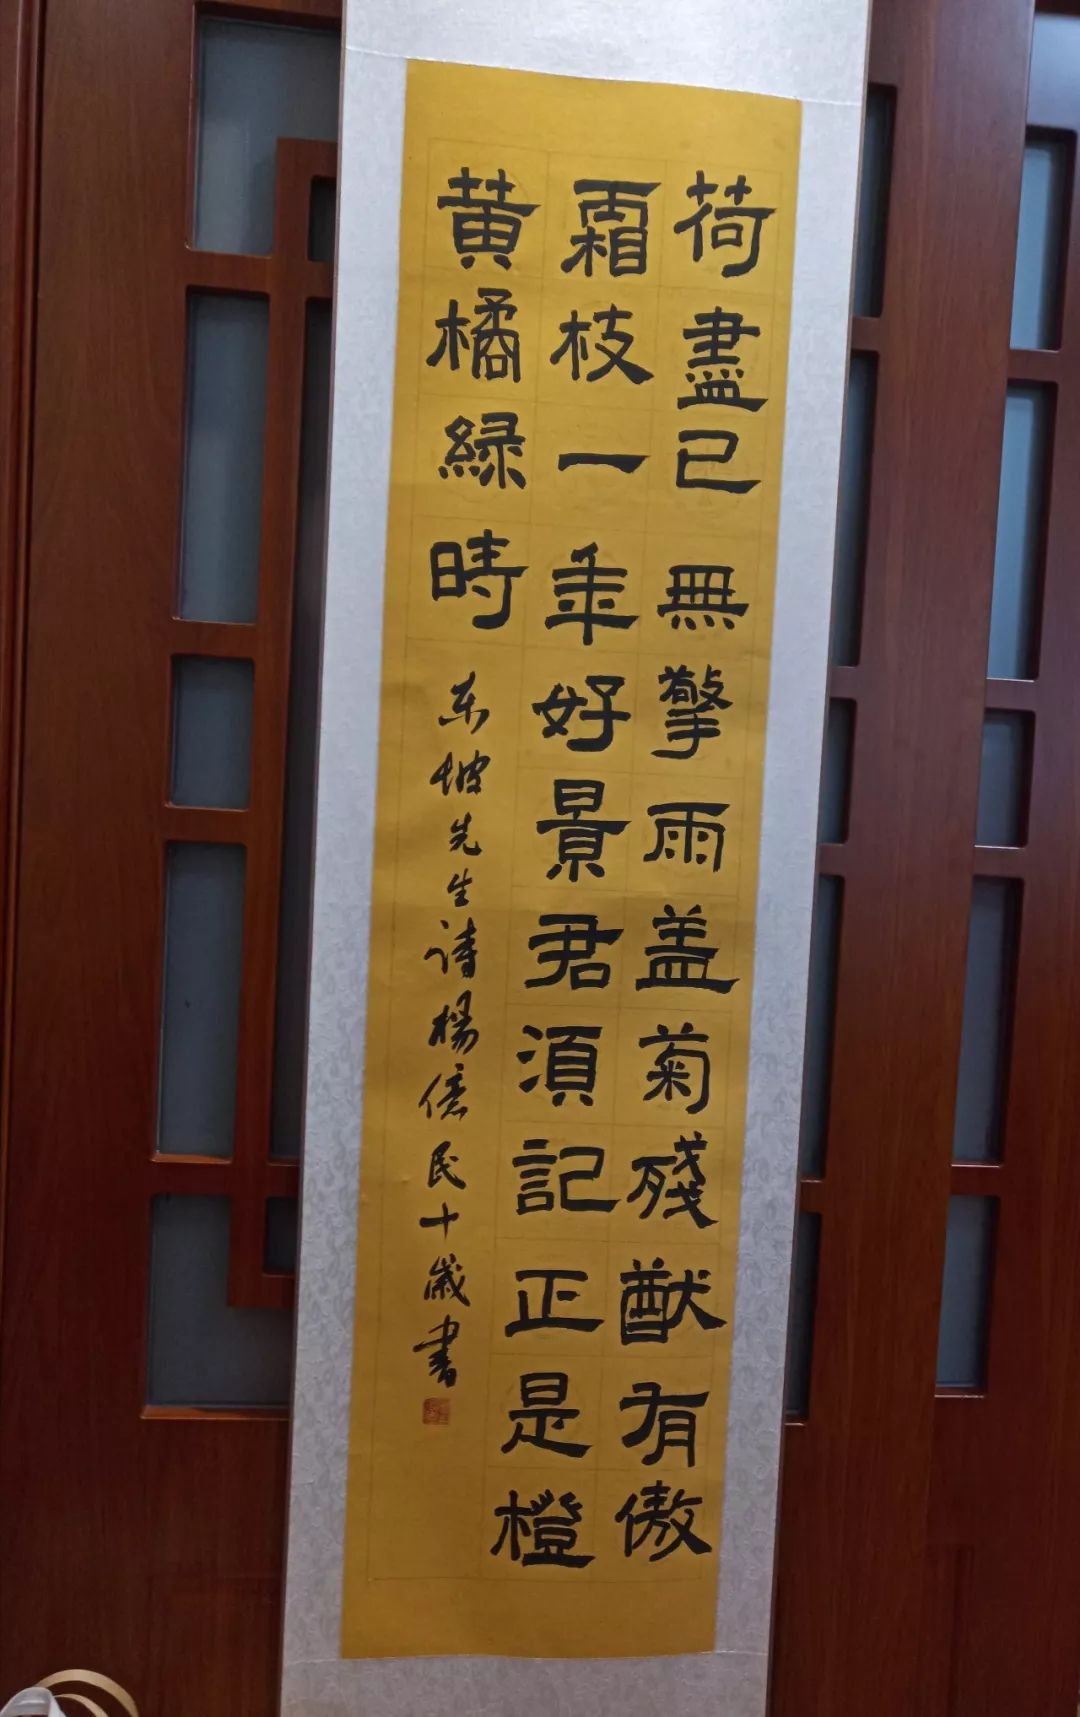 荷盡已無擎雨盖菊殘猷有傲
霜枝一年好景君須記正是橙
黄橘緑時
东坡先生诗楊億民十歲書